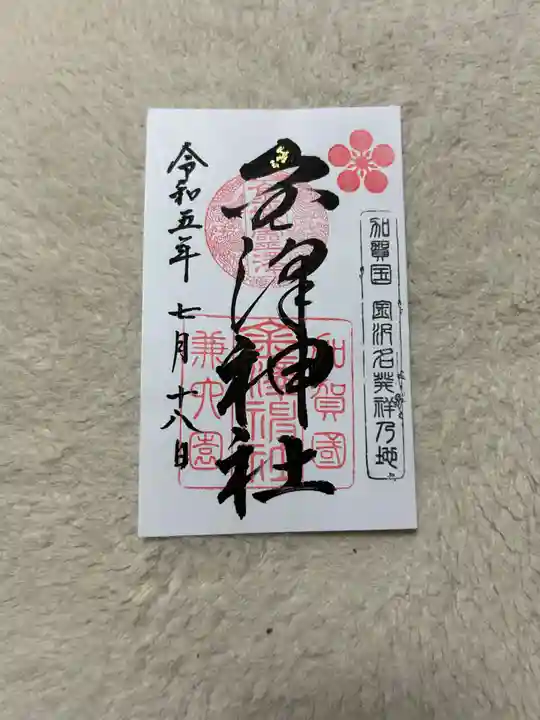 加賀国 金沢名発祥乃地
金澤神社
加賀國
金澤神社
兼六園
令和五年 七月十八日